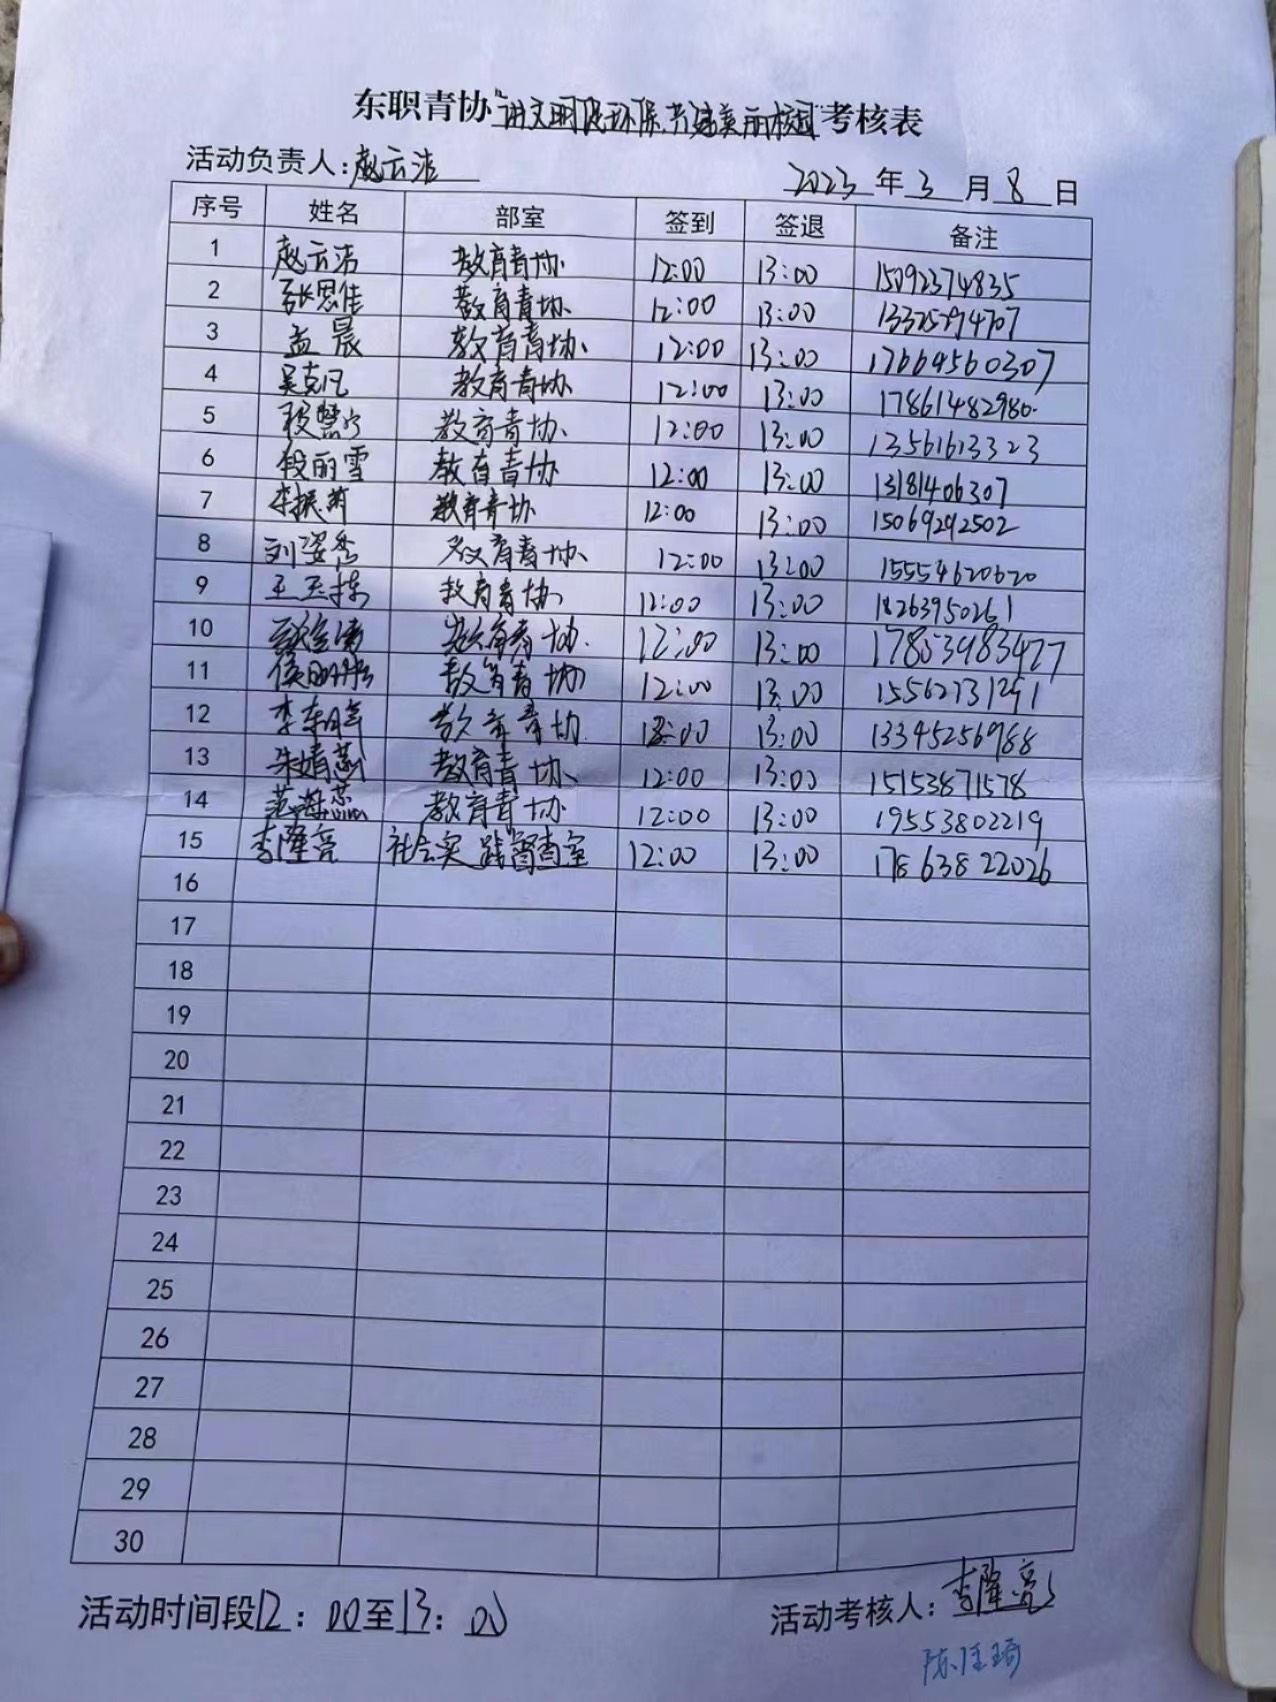 东职青协"讲文明促环保,共建美丽校园"考核表
活动负责人:赵云洁 2023年3月8日
序号 姓名 部室 签到 签退 备注
1 赵云洁 教育青协 12:00 13:00 15092374835
2 张思佳 教育青协 12:00 13:00
3 孟晨 教育青协 12:00 13:00 17664560307
4 吴克凡 教育青协 12:00 13:00 17861482980
5 教育青协 12:00 13:00 13561613323
6 段丽雪 教育青协 12:00 13:00 13181406307
7 李振菊 教育青协 12:00 13:00 15069292502
8 刘姿秀 教育青协 12:00 13:00 15554620620
9 王玉栋 教育青协 12:00 13:00 18263950261
10 教育青协 12:00 13:00 17853983477
11 教育青协 12:00 13:00 15562731291
12 李东 教育青协 13:00 13345256988
13 朱婧菡 教育青协 12:00 13:00 15153871578
14 范海蕊 教育青协 12:00 13:00 19553802219
15 李隆亮 社会实践督查室 12:00 13:00 17863822026
16
17
18
19
20
21
22
23
24
25
26
27
28
29
30
活动时间段12:00至13:00 活动考核人:李隆亮
陈佳琦